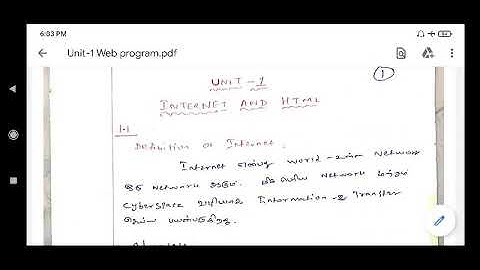 6:03 PM
Unit-1 Web program.pdf
1
UNIT - 1
INTERNET AND HTML
1.1
Definition of Internet:
Internet என்பது world - உள்ள Network
ஒரு Network ஆகும். மிக பெரிய Network மற்றும்
Cyberspace வழியாக Information -ஐ Transfer
செய்ய பயன்படுகிறது.